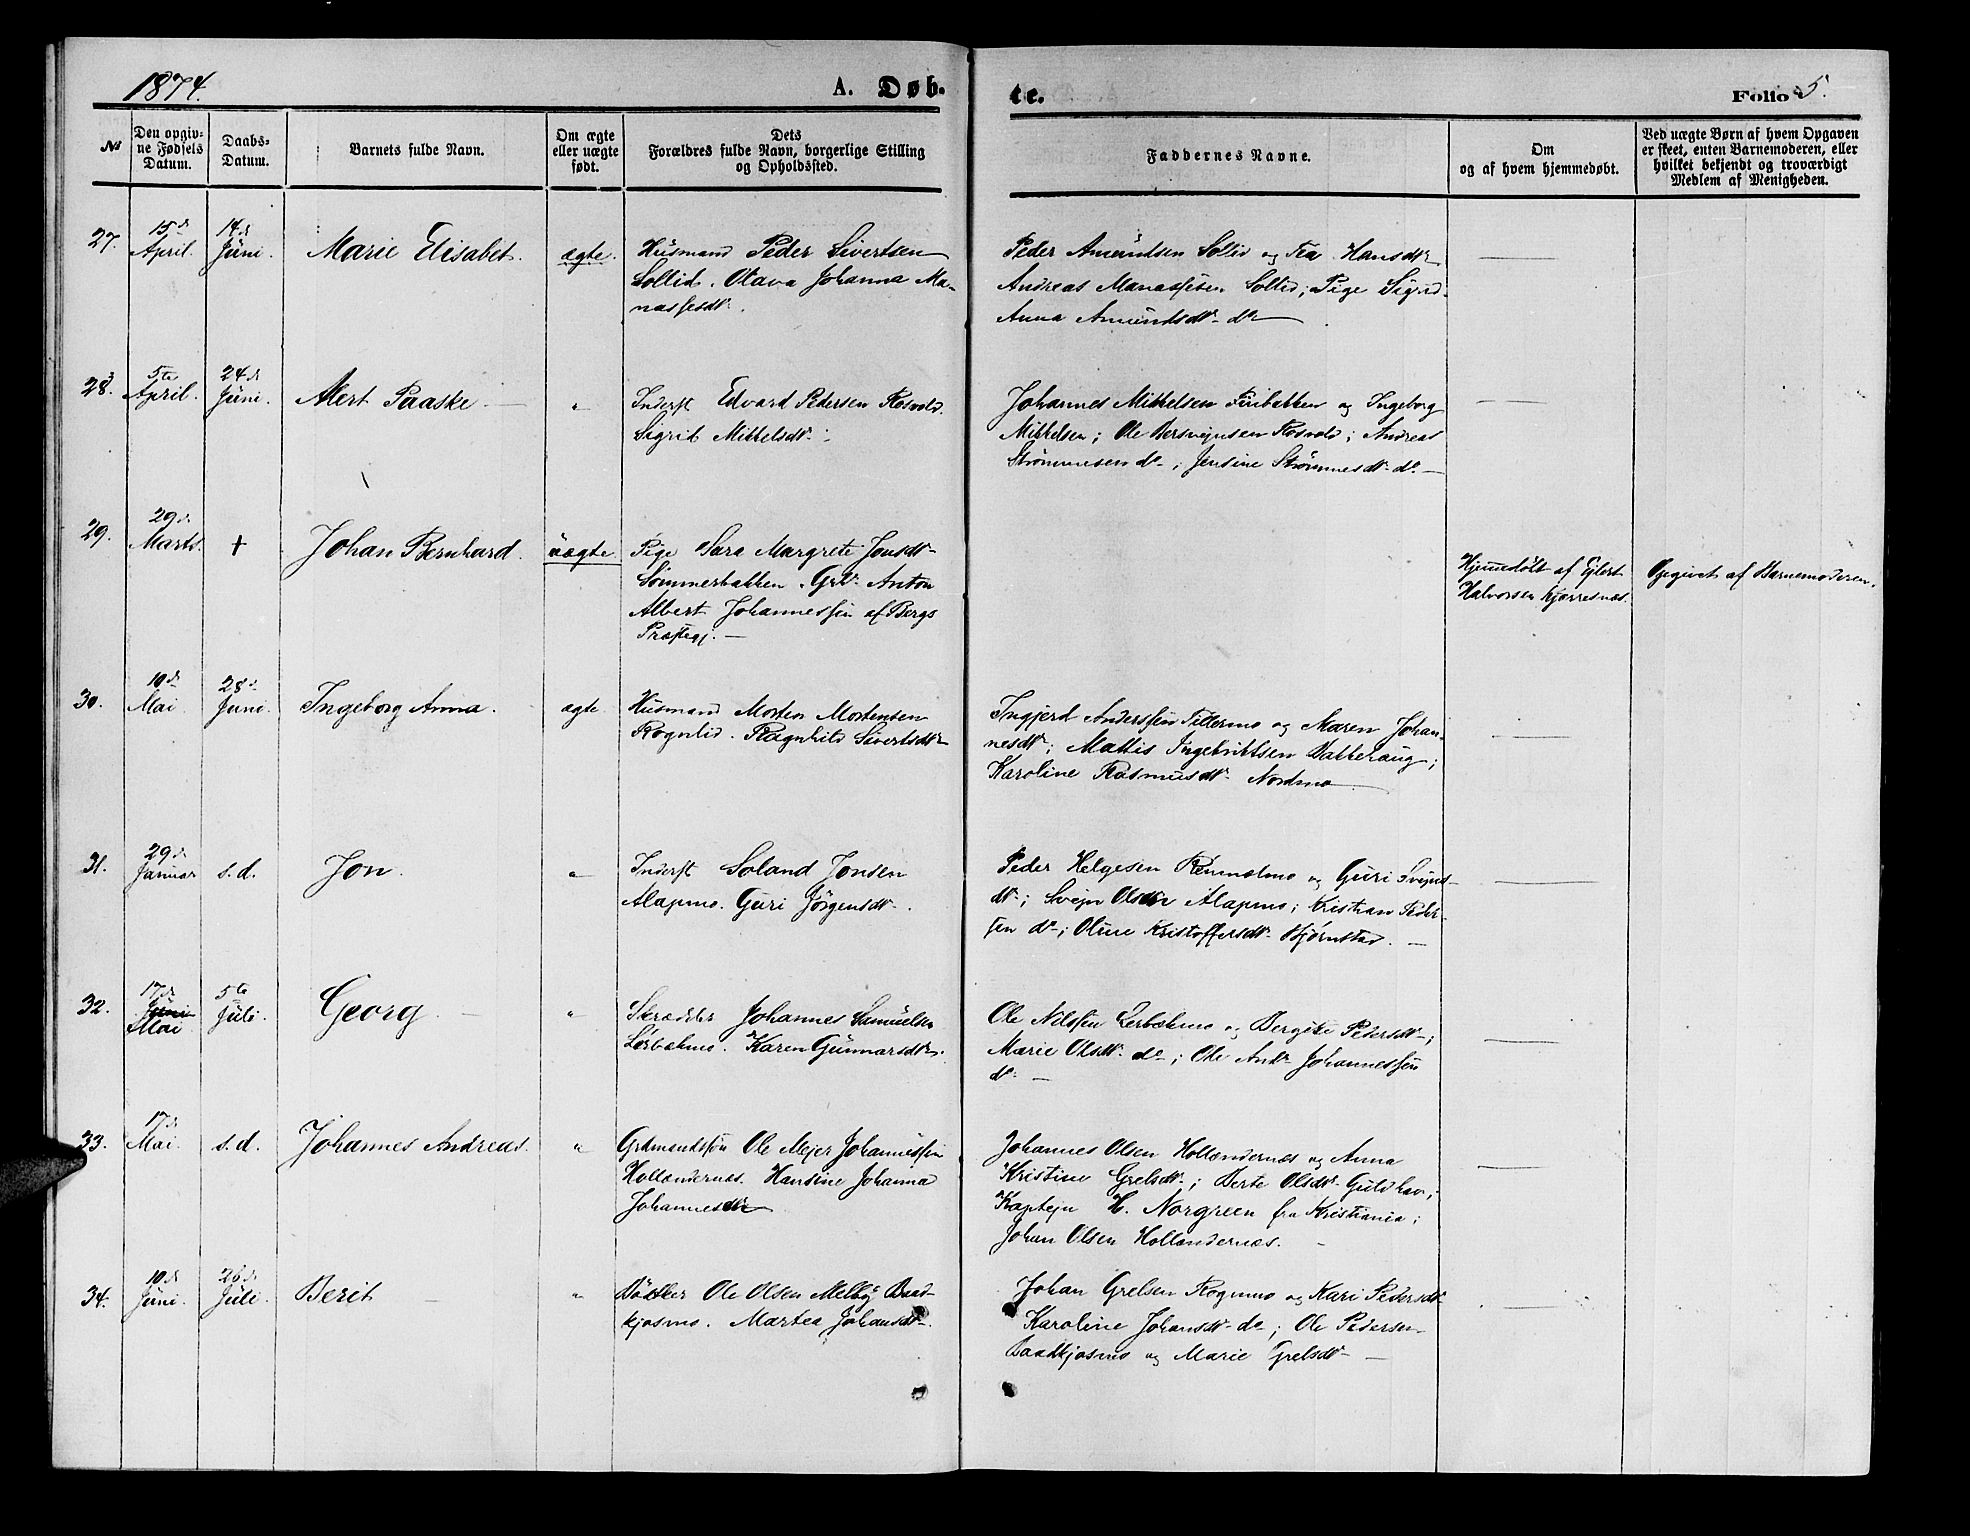 1874.
A. Døb-
te.
Folio 5.
№
Den opgiv-
ne Fødsels
Datum.
Daabs-
Datum.
Barnets fulde Navn.
Om ægte
eller uægte
født.
Dets
Forældres fulde Navn, borgerlige Stilling
og Opholdssted.
Faddernes Navne.
Om
og af hvem hjemmedøbt.
Ved uægte Børn af hvem Opgaven
er skeet, enten Barnemoderen, eller
hvilket bekjendt og troværdigt
Medlem af Menigheden.
27.
15de
April.
14de
Juni.
Marie Elisabet.
ægte.
Husmand Peder Sivertsen
Sollid. Olava Johanna Ma-
nassesdtr.
Peder Amundsen Sollid og Tea Hansdtr
Andreas Manassesen Sollid; Pige Sigrid
Anna Amundsdtr do
28.
5te
April.
24de
Juni.
Alert Paaske
"
Inderst Edvard Pedersen Rosvold.
Sigrid Mikkelsdtr.
Johannes Mikkelsen og Ingeborg
Mikkelsen; Ole Bersvejnsen Rosvold; Andreas
Strømmesen do; Jensine Strømmesdtr do.
29.
29de
Marts.
+
Johan Bernhard.
uægte
Pige Sara Margrete Jonsdtr
Sommerbakken. Grd. Anton
Albert Johannessen af Bergs
Præstegj.
Hjemmedøbt af Ejlert
Halvorsen Kjærresnæs.
Opgivet af Barnemoderen.
30.
10de
Mai
28de
Juni.
Ingeborg Anna.
ægte
Husmand Morten Mortensen
Rognlid. Ragnhild Sivertsdtr
Ingjerd Anderssen Fillermo og Maren Johan-
nesdtr; Mattis Ingebriktsen Bakkehaug;
Karoline Rasmusdtr Nordmo
31.
29de
Januar
s. d.
Jon.
"
Inderst Soland Jonsen
Alapmo. Guri Jørgensdtr.
Peder Helgesen og Guri Svejns-
dtr; Svejn Olsen Alapmo; Kristian Peder-
sen do; Oline Kristoffersdtr Bjørnstad.
32.
17de
Juni
Mai
5te
Juli.
Georg
"
Skrædder Johannes Samuelsen
Lerbækmo. Karen Gunnarsdtr.
Ole Nilssen Lerbækmo og Bergite Pedersdtr;
Marie Olsdtr. do; Ole Andr Johannessen
do.
33.
17de
Mai.
s. d.
Johannes Andreas.
"
Grdmandssøn Ole Mejer Johannessen
Hollændernæs. Hansine Johanna
Johannesdtr
Johannes Olsen Hollændernæs og Anna
Kristine Grelsdtr; Berte Olsdtr Guldhav;
Kaptejn H. Norgreen fra Kristiania;
Johan Olsen Hollændernæs.
34.
10de
Juni.
26de
Juli.
Berit
"
Bødker Ole Olsen Melby Baad-
kjosmo. Martea Johansdtr.
Johan Grelsen Rognmo og Kari Pedersdtr
Karoline Johansdtr do; Ole Pedersen
Baadkjosmo og Marie Grelsdtr